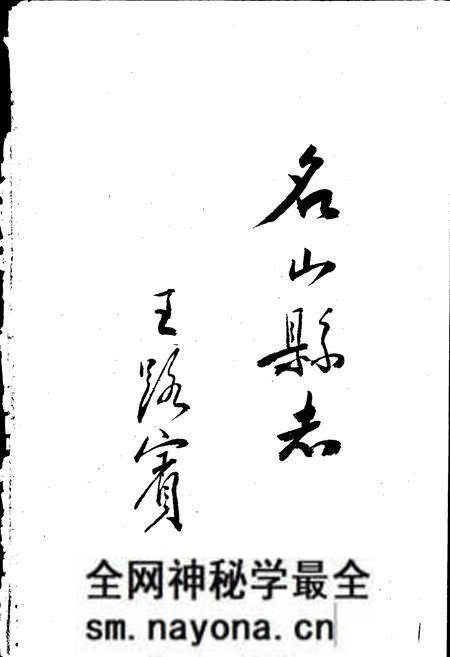 名山縣志
王路賓
全网神秘学最全
sm.nayona.cn